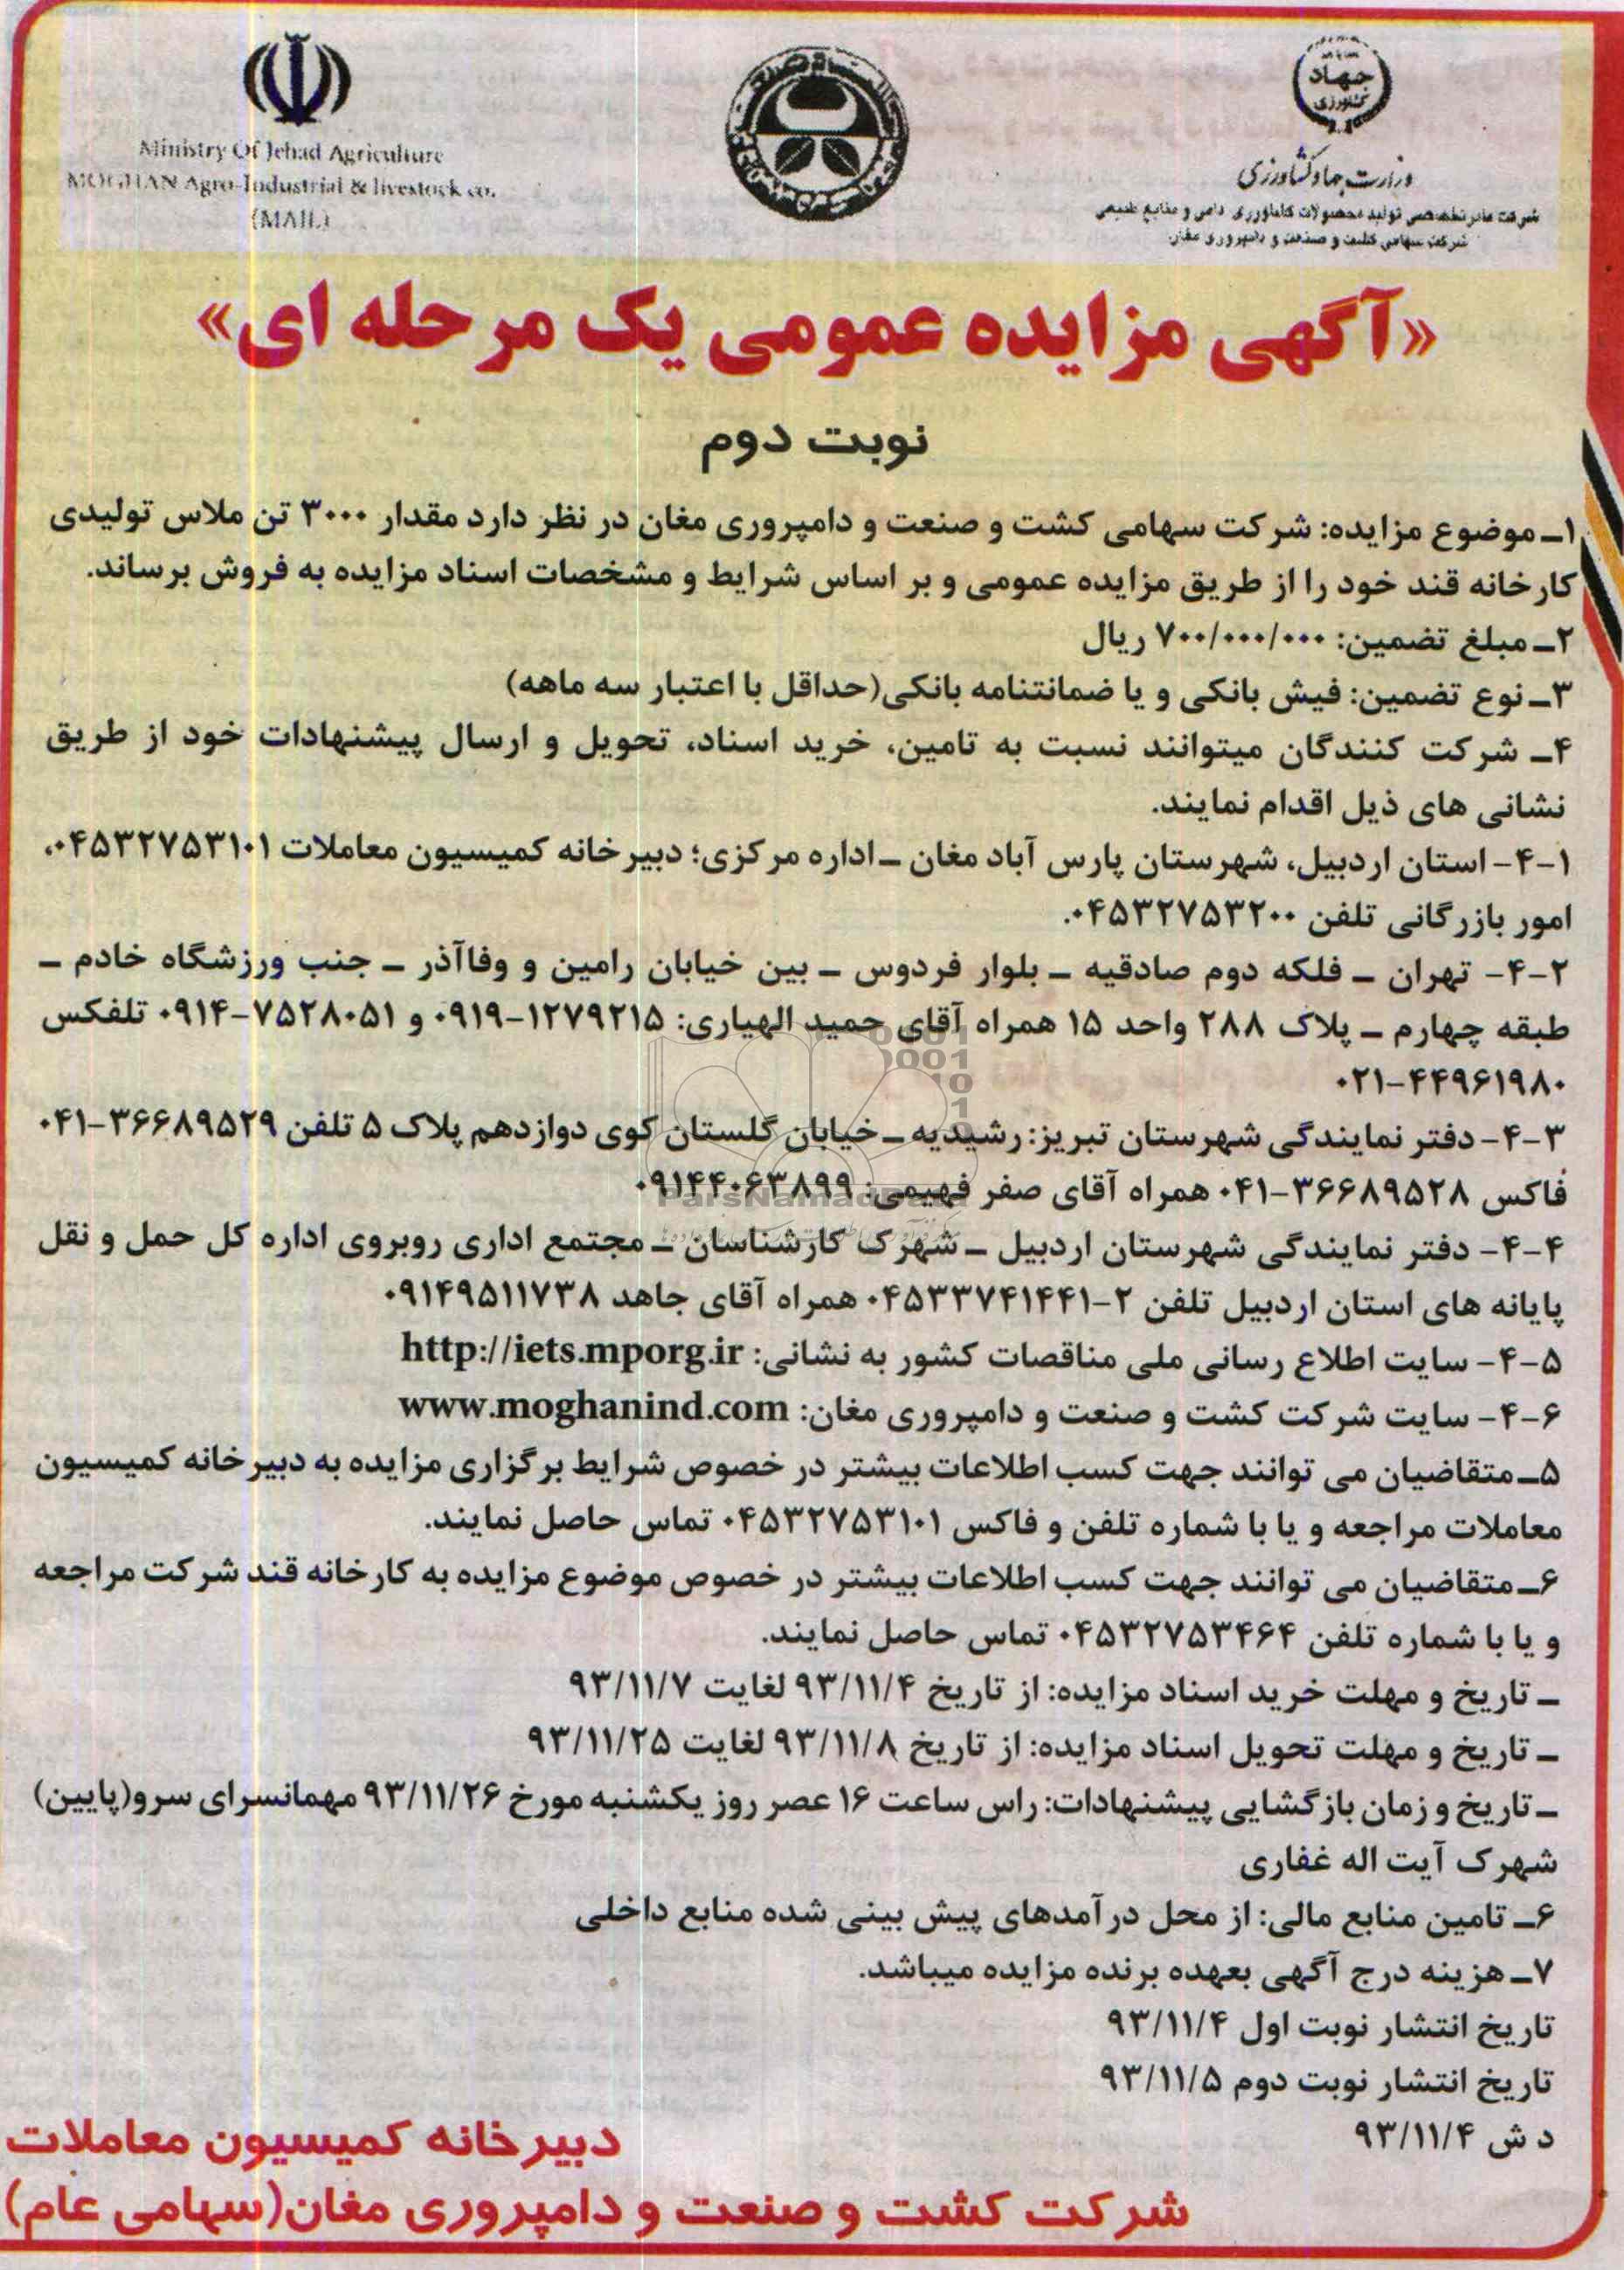 Ministry Of Jehad Agriculture
MOGHAN Agro-Industrial & livestock co.
(MAIL)
جهاد
کشاورزی
وزارت جهاد کشاورزی
شرکت مادر تخصصی تولید محصولات کشاورزی دامی و منابع طبیعی
شرکت سهامی کشت و صنعت و دامپروری مغان
«آگهی مزایده عمومی یک مرحله ای»
نوبت دوم
۱ـ موضوع مزایده: شرکت سهامی کشت و صنعت و دامپروری مغان در نظر دارد مقدار ۳۰۰۰ تن ملاس تولیدی
کارخانه قند خود را از طریق مزایده عمومی و بر اساس شرایط و مشخصات اسناد مزایده به فروش برساند.
۲ـ مبلغ تضمین: ۷۰۰/۰۰۰/۰۰۰ ریال
۳ـ نوع تضمین: فیش بانکی و یا ضمانتنامه بانکی(حداقل با اعتبار سه ماهه)
۴ـ شرکت کنندگان میتوانند نسبت به تامین، خرید اسناد، تحویل و ارسال پیشنهادات خود از طریق
نشانی های ذیل اقدام نمایند.
۴-۱- استان اردبیل، شهرستان پارس آباد مغان ـ اداره مرکزی؛ دبیرخانه کمیسیون معاملات ۰۴۵۳۲۷۵۳۱۰۱،
امور بازرگانی تلفن ۰۴۵۳۲۷۵۳۲۰۰.
۴-۲- تهران ـ فلکه دوم صادقیه ـ بلوار فردوس ـ بین خیابان رامین و وفاآذر ـ جنب ورزشگاه خادم ـ
طبقه چهارم ـ پلاک ۲۸۸ واحد ۱۵ همراه آقای حمید الهیاری: ۱۲۷۹۲۱۵-۰۹۱۹ و ۷۵۲۸۰۵۱-۰۹۱۴ تلفکس
۰۲۱-۴۴۹۶۱۹۸۰
۴-۳- دفتر نمایندگی شهرستان تبریز: رشیدیه ـ خیابان گلستان کوی دوازدهم پلاک ۵ تلفن ۳۶۶۸۹۵۲۹-۰۴۱
فاکس ۳۶۶۸۹۵۲۸-۰۴۱ همراه آقای صفر فهیمی: ۰۹۱۴۴۰۶۳۸۹۹
ParsNamad
۴-۴- دفتر نمایندگی شهرستان اردبیل ـ شهرک کارشناسان ـ مجتمع اداری روبروی اداره کل حمل و نقل
پایانه های استان اردبیل تلفن ۲-۰۴۵۳۳۷۴۱۴۴۱ همراه آقای جاهد ۰۹۱۴۹۵۱۱۷۳۸
۴-۵- سایت اطلاع رسانی ملی مناقصات کشور به نشانی: http://iets.mporg.ir
۴-۶- سایت شرکت کشت و صنعت و دامپروری مغان: www.moghanind.com
۵ـ متقاضیان می توانند جهت کسب اطلاعات بیشتر در خصوص شرایط برگزاری مزایده به دبیرخانه کمیسیون
معاملات مراجعه و یا با شماره تلفن و فاکس ۰۴۵۳۲۷۵۳۱۰۱ تماس حاصل نمایند.
۶ـ متقاضیان می توانند جهت کسب اطلاعات بیشتر در خصوص موضوع مزایده به کارخانه قند شرکت مراجعه
و یا با شماره تلفن ۰۴۵۳۲۷۵۳۴۶۴ تماس حاصل نمایند.
ـ تاریخ و مهلت خرید اسناد مزایده: از تاریخ ۹۳/۱۱/۴ لغایت ۹۳/۱۱/۷
ـ تاریخ و مهلت تحویل اسناد مزایده: از تاریخ ۹۳/۱۱/۸ لغایت ۹۳/۱۱/۲۵
ـ تاریخ و زمان بازگشایی پیشنهادات: راس ساعت ۱۶ عصر روز یکشنبه مورخ ۹۳/۱۱/۲۶ مهمانسرای سرو(پایین)
شهرک آیت اله غفاری
۶ـ تامین منابع مالی: از محل درآمدهای پیش بینی شده منابع داخلی
۷ـ هزینه درج آگهی بعهده برنده مزایده میباشد.
تاریخ انتشار نوبت اول ۹۳/۱۱/۴
تاریخ انتشار نوبت دوم ۹۳/۱۱/۵
د ش ۹۳/۱۱/۴
دبیرخانه کمیسیون معاملات
شرکت کشت و صنعت و دامپروری مغان(سهامی عام)